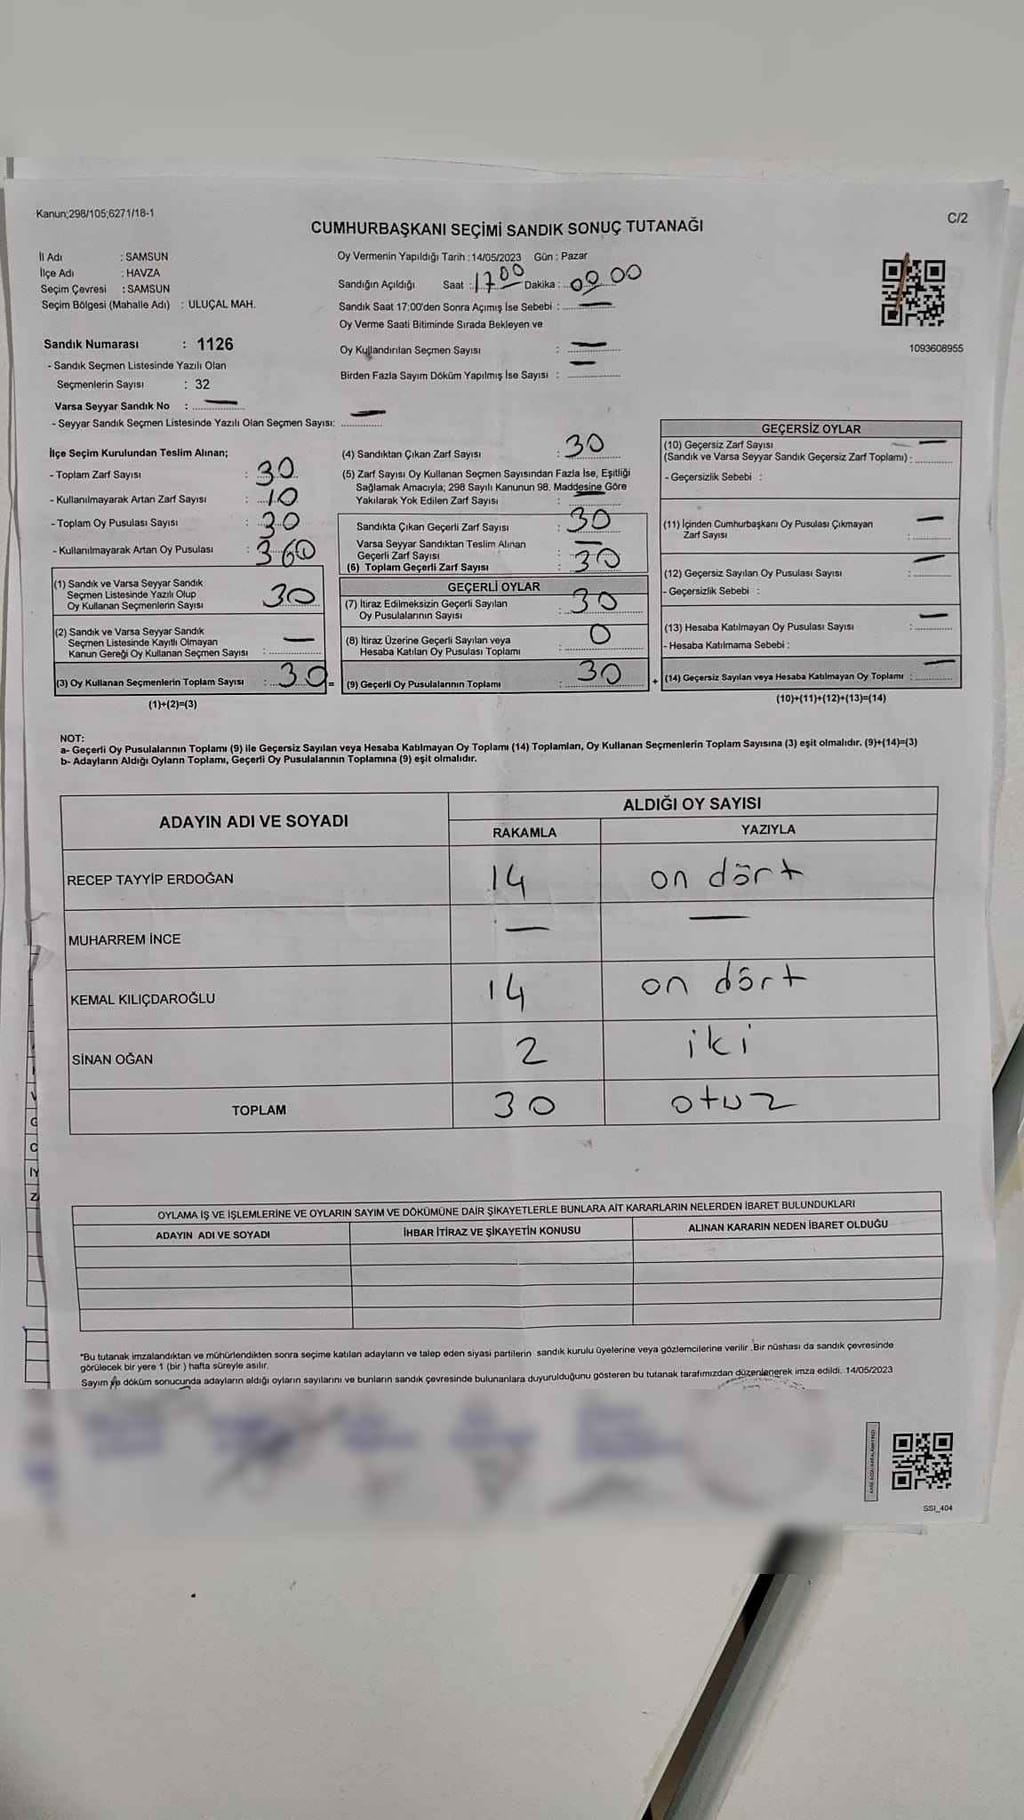 Kanun;298/105;6271/18-1
C/2
CUMHURBAŞKANI SEÇİMİ SANDIK SONUÇ TUTANAĞI
İl Adı : SAMSUN
İlçe Adı : HAVZA
Seçim Çevresi : SAMSUN
Seçim Bölgesi (Mahalle Adı) : ULUÇAL MAH.
Sandık Numarası : 1126
- Sandık Seçmen Listesinde Yazılı Olan
Seçmenlerin Sayısı : 32
Varsa Seyyar Sandık No : —
- Seyyar Sandık Seçmen Listesinde Yazılı Olan Seçmen Sayısı: —
Oy Vermenin Yapıldığı Tarih : 14/05/2023 Gün : Pazar
Sandığın Açıldığı Saat : 1700 Dakika : 00 00
Sandık Saat 17:00'den Sonra Açımış İse Sebebi : —
Oy Verme Saati Bitiminde Sırada Bekleyen ve
Oy Kullandırılan Seçmen Sayısı : —
Birden Fazla Sayım Döküm Yapılmış İse Sayısı : —
1093608955
İlçe Seçim Kurulundan Teslim Alınan;
- Toplam Zarf Sayısı : 30
- Kullanılmayarak Artan Zarf Sayısı : 10
- Toplam Oy Pusulası Sayısı : 30
- Kullanılmayarak Artan Oy Pusulası : 360
(1) Sandık ve Varsa Seyyar Sandık
Seçmen Listesinde Yazılı Olup
Oy Kullanan Seçmenlerin Sayısı 30
(2) Sandık ve Varsa Seyyar Sandık
Seçmen Listesinde Kayıtlı Olmayan
Kanun Gereği Oy Kullanan Seçmen Sayısı : —
(3) Oy Kullanan Seçmenlerin Toplam Sayısı : 30 =
(1)+(2)=(3)
(4) Sandıktan Çıkan Zarf Sayısı : 30
(5) Zarf Sayısı Oy Kullanan Seçmen Sayısından Fazla İse, Eşitliği
Sağlamak Amacıyla; 298 Sayılı Kanunun 98. Maddesine Göre
Yakılarak Yok Edilen Zarf Sayısı : —
Sandıkta Çıkan Geçerli Zarf Sayısı : 30
Varsa Seyyar Sandıktan Teslim Alınan
Geçerli Zarf Sayısı : —
(6) Toplam Geçerli Zarf Sayısı : 30
GEÇERLİ OYLAR
(7) İtiraz Edilmeksizin Geçerli Sayılan
Oy Pusulalarının Sayısı : 30
(8) İtiraz Üzerine Geçerli Sayılan veya
Hesaba Katılan Oy Pusulası Toplamı : 0
(9) Geçerli Oy Pusulalarının Toplamı : 30 +
GEÇERSİZ OYLAR
(10) Geçersiz Zarf Sayısı
(Sandık ve Varsa Seyyar Sandık Geçersiz Zarf Toplamı) : —
- Geçersizlik Sebebi :
(11) İçinden Cumhurbaşkanı Oy Pusulası Çıkmayan
Zarf Sayısı : —
(12) Geçersiz Sayılan Oy Pusulası Sayısı : —
- Geçersizlik Sebebi :
(13) Hesaba Katılmayan Oy Pusulası Sayısı : —
- Hesaba Katılmama Sebebi :
(14) Geçersiz Sayılan veya Hesaba Katılmayan Oy Toplamı : —
(10)+(11)+(12)+(13)=(14)
NOT:
a- Geçerli Oy Pusulalarının Toplamı (9) ile Geçersiz Sayılan veya Hesaba Katılmayan Oy Toplamı (14) Toplamları, Oy Kullanan Seçmenlerin Toplam Sayısına (3) eşit olmalıdır. (9)+(14)=(3)
b- Adayların Aldığı Oyların Toplamı, Geçerli Oy Pusulalarının Toplamına (9) eşit olmalıdır.
ADAYIN ADI VE SOYADI
ALDIĞI OY SAYISI
RAKAMLA YAZIYLA
RECEP TAYYİP ERDOĞAN 14 on dört
MUHARREM İNCE — —
KEMAL KILIÇDAROĞLU 14 on dört
SİNAN OĞAN 2 iki
TOPLAM 30 otuz
OYLAMA İŞ VE İŞLEMLERİNE VE OYLARIN SAYIM VE DÖKÜMÜNE DAİR ŞİKAYETLERLE BUNLARA AİT KARARLARIN NELERDEN İBARET BULUNDUKLARI
ADAYIN ADI VE SOYADI İHBAR İTİRAZ VE ŞİKAYETİN KONUSU ALINAN KARARIN NEDEN İBARET OLDUĞU
*Bu tutanak imzalandıktan ve mühürlendikten sonra seçime katılan adayların ve talep eden siyasi partilerin sandık kurulu üyelerine veya gözlemcilerine verilir. Bir nüshası da sandık çevresinde
görülecek bir yere 1 (bir) hafta süreyle asılır.
Sayım ve döküm sonucunda adayların aldığı oyların sayılarını ve bunların sandık çevresinde bulunanlara duyurulduğunu gösteren bu tutanak tarafımızdan düzenlenerek imza edildi. 14/05/2023
SSI_404